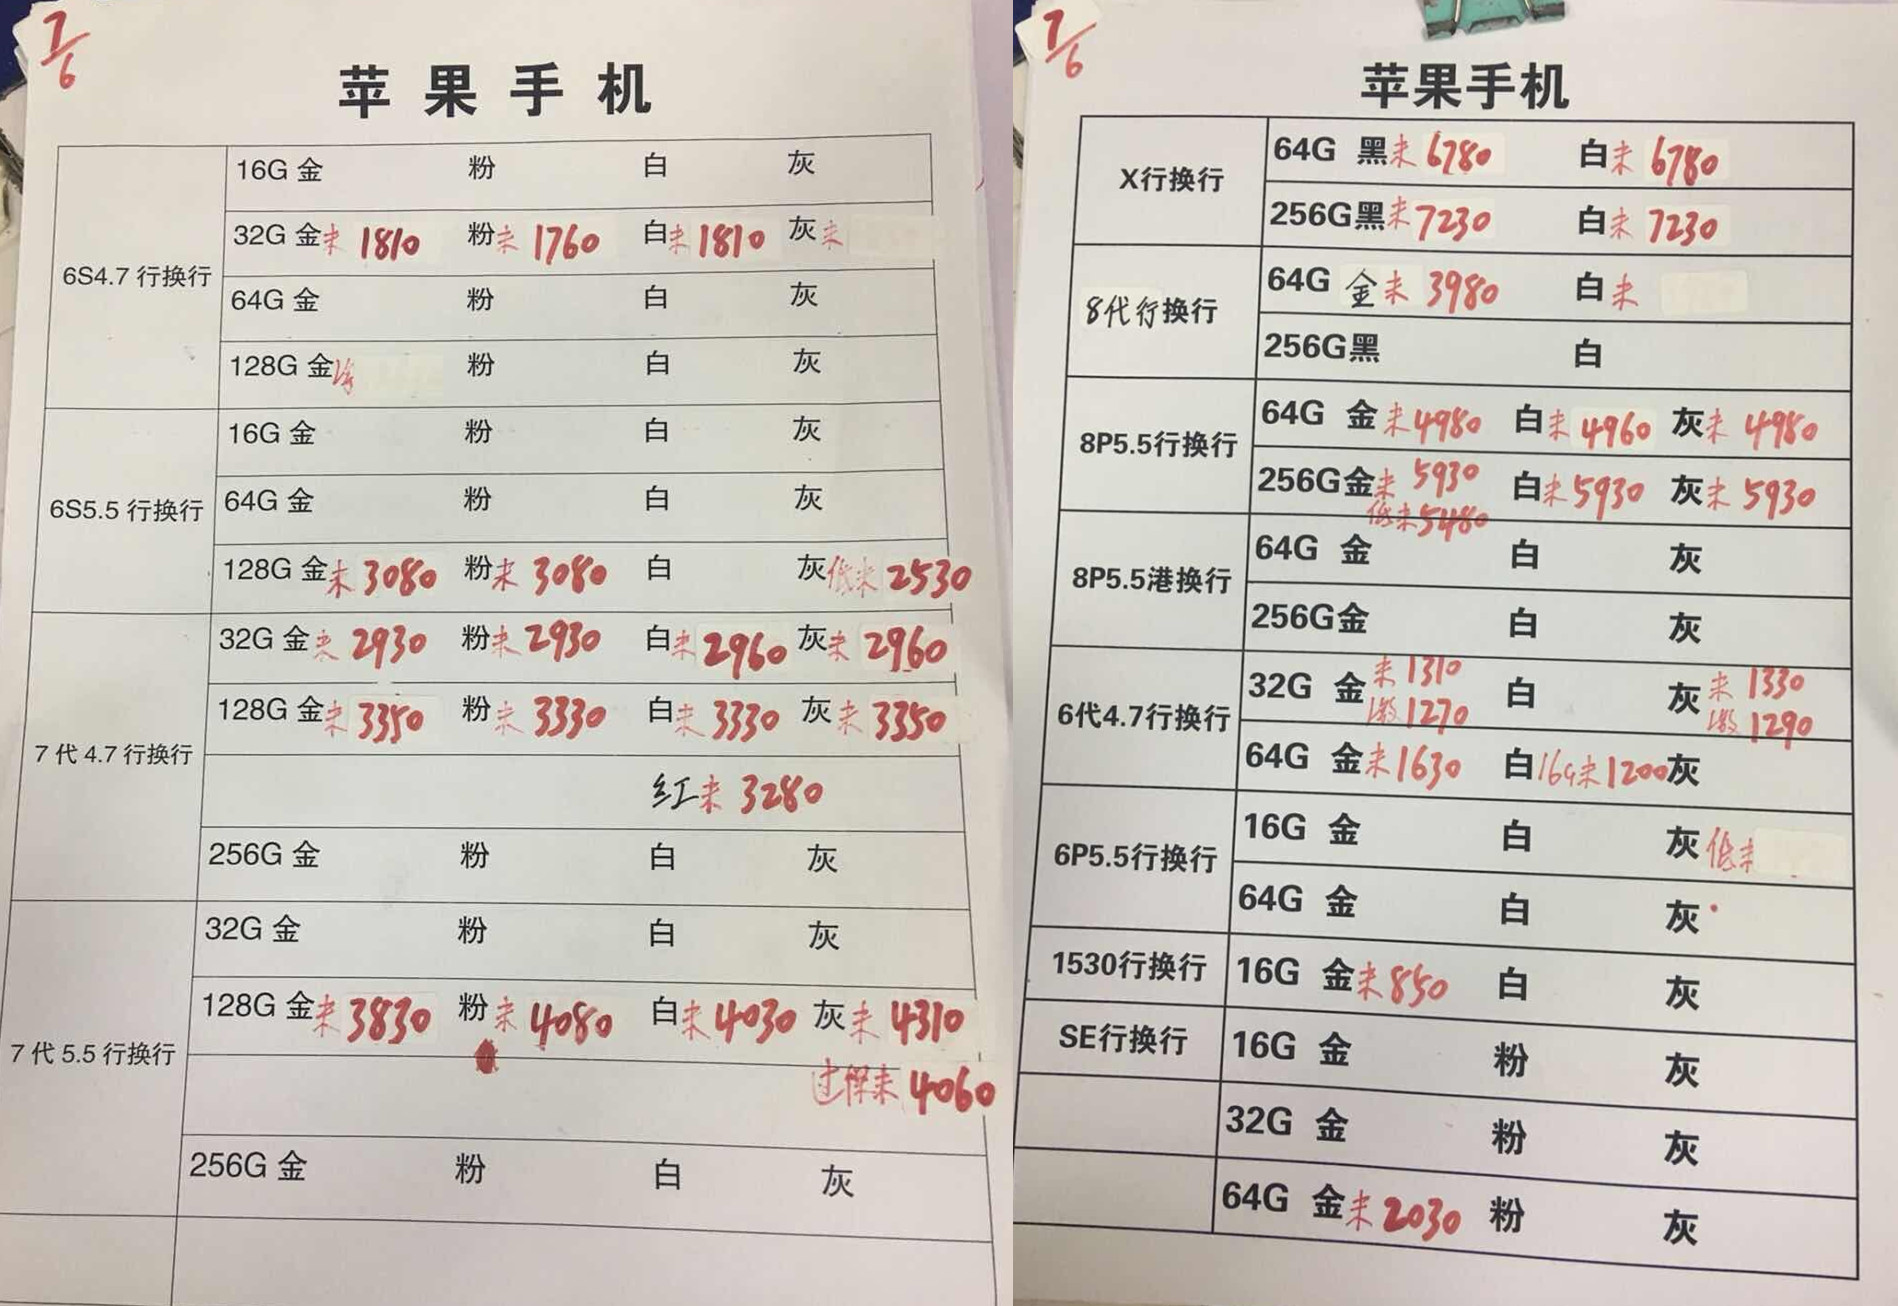 7/6
苹果手机
6S4.7 行换行
16G 金 粉 白 灰
32G 金未 1810 粉未 1760 白未 1810 灰未
64G 金 粉 白 灰
128G 金 粉 白 灰
6S5.5 行换行
16G 金 粉 白 灰
64G 金 粉 白 灰
128G 金未 3080 粉未 3080 白 灰低未 2530
7 代 4.7 行换行
32G 金未 2930 粉未 2930 白未 2960 灰未 2960
128G 金未 3350 粉未 3330 白未 3330 灰未 3350
红未 3280
256G 金 粉 白 灰
7 代 5.5 行换行
32G 金 粉 白 灰
128G 金未 3830 粉未 4080 白未 4030 灰未 4310
过保未 4060
256G 金 粉 白 灰
7/6
苹果手机
X行换行
64G 黑未 6780 白未 6780
256G黑未 7230 白未 7230
8代行换行
64G 金未 3980 白未
256G黑 白
8P5.5行换行
64G 金未 4980 白未 4960 灰未 4980
256G金未 5930 白未 5930 灰未 5930
低未 5480
8P5.5港换行
64G 金 白 灰
256G金 白 灰
6代4.7行换行
32G 金未 1310 白 灰未 1330
激 1270 激 1290
64G 金未 1630 白16G未 1200 灰
6P5.5行换行
16G 金 白 灰低未
64G 金 白 灰
1530行换行
16G 金未 850 白 灰
SE行换行
16G 金 粉 灰
32G 金 粉 灰
64G 金未 2030 粉 灰